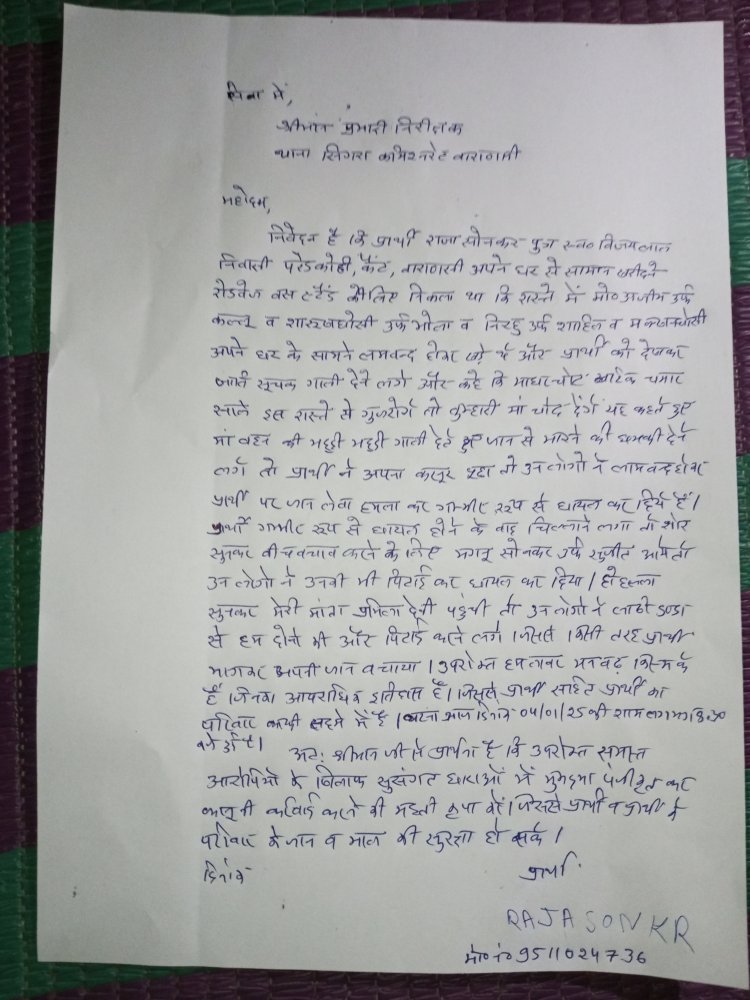 सेवा में,
श्रीमान प्रभारी निरीक्षक
थाना सिगरा कमिश्नरेट वाराणसी
महोदय,
निवेदन है कि प्रार्थी राजा सोनकर पुत्र स्व० विजयलाल
निवासी परेडकोठी, कैंट, वाराणसी अपने घर से सामान खरीदने
रोडवेज बस स्टैंड के लिए निकला था कि रास्ते में मो० अजीम उर्फ
कल्लू व शारूखघोसी उर्फ भोला व निरहू उर्फ शाहिल व मक्खनघोसी
अपने घर के सामने लामबन्द होकर खड़े थे और प्रार्थी को देखकर
जाति सूचक गाली देने लगे और कहे कि माधरचोद खटिक चमार
साले इस रास्ते से गुजरोगे तो तुम्हारी मां चोद देंगे यह कहते हुए
मां बहन की भद्दी भद्दी गाली देते हुए जान से मारने की धमकी देने
लगे तो प्रार्थी ने अपना कसूर पूछा तो उन लोगो ने लामबन्द होकर
प्रार्थी पर जान लेवा हमला कर गम्भीर रूप से घायल कर दिये हैं।
प्रार्थी गम्भीर रूप से घायल होने के बाद चिल्लाने लगा तो शोर
सुनकर बीचबचाव करने के लिए मगनू सोनकर उर्फ सुजीत आये तो
उन लोगो ने उनकी भी पिटाई कर घायल कर दिया। हो हल्ला
सुनकर मेरी माता प्रमिला देवी पहुंची तो उन लोगो ने लाठी डण्डा
से हम दोनो की और पिटाई करने लगे। जिससे किसी तरह प्रार्थी
भागकर अपनी जान बचाया। उपरोक्त हमलावर मनबढ़ किस्म के
हैं जिनका आपराधिक इतिहास हैं। जिससे प्रार्थी सहित प्रार्थी का
परिवार काफी सदमे में है। घटना आज दिनांक 04/01/25 की शाम लगभग
अतः श्रीमान जी से प्रार्थना है कि उपरोक्त समस्त
आरोपियो के खिलाफ सुसंगत धाराओं में मुकदमा पंजीकृत कर
कानूनी कार्रवाई करने की महती कृपा करें। जिससे प्रार्थी व प्रार्थी के
परिवार के जान व माल की सुरक्षा हो सके।
दिनांक
प्रार्थी
RAJA SONKR
मो० नं० 9511024736